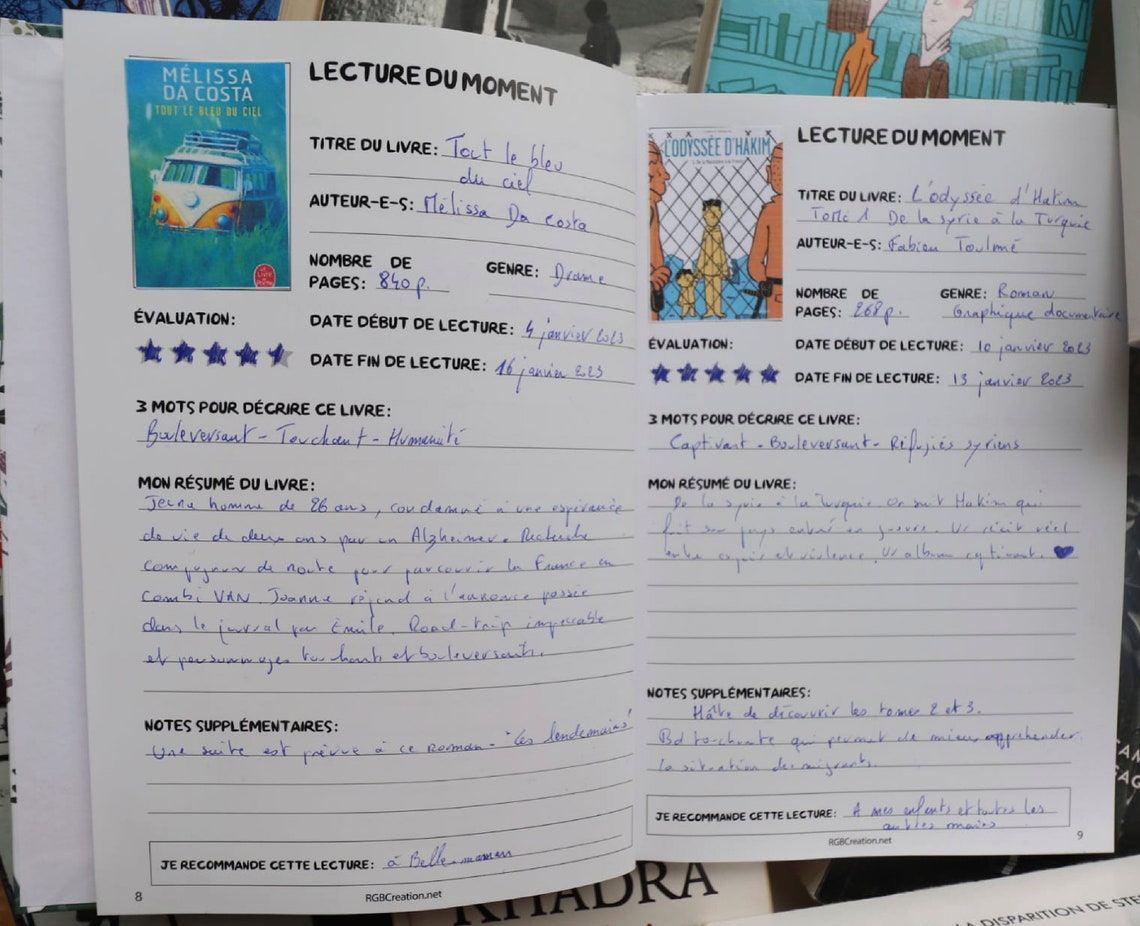 MÉLISSA
DA COSTA
TOUT LE BLEU DU CIEL
LE LIVRE
LECTURE DU MOMENT
TITRE DU LIVRE: Tout le bleu
du ciel
AUTEUR-E-S: Mélissa Da costa
NOMBRE DE
PAGES: 840 p.
GENRE: Drame
ÉVALUATION:
DATE DÉBUT DE LECTURE: 4 janvier 2023
DATE FIN DE LECTURE: 16 janvier 2023
3 MOTS POUR DÉCRIRE CE LIVRE:
Bouleversant - Touchant - Humanité
MON RÉSUMÉ DU LIVRE:
Jeune homme de 26 ans, condamné à une espérance
de vie de deux ans par un Alzheimer. Recherche
compagnon de route pour parcourir la France en
combi VAN. Joanne répond à l'annonce passée
dans le journal par Émile. Road-trip impeccable
et personnages touchants et bouleversants.
NOTES SUPPLÉMENTAIRES:
Une suite est prévue à ce roman - "Les lendemains"
JE RECOMMANDE CETTE LECTURE: à Belle-maman
8
RGBCreation.net
L'ODYSSÉE D'HAKIM
LECTURE DU MOMENT
TITRE DU LIVRE: L'odyssée d'Hakim
TOME 1 De la syrie à la Turquie
AUTEUR-E-S: Fabien Toulmé
NOMBRE DE
PAGES: 268 p.
GENRE: Roman
Graphique documentaire
ÉVALUATION:
DATE DÉBUT DE LECTURE: 10 janvier 2023
DATE FIN DE LECTURE: 13 janvier 2023
3 MOTS POUR DÉCRIRE CE LIVRE:
Captivant - Bouleversant - Réfugiés syriens
MON RÉSUMÉ DU LIVRE:
De la syrie à la Turquie. On suit Hakim qui
fuit son pays entré en guerre. Un récit réel
entre espoir et violence. Un album captivant.
NOTES SUPPLÉMENTAIRES:
Hâte de découvrir les tomes 2 et 3.
Bd touchante qui permet de mieux appréhender
la situation des migrants.
JE RECOMMANDE CETTE LECTURE: A mes enfants et toutes les
autres mains
RGBCreation.net
9
KHADRA
LA DISPARITION DE STE